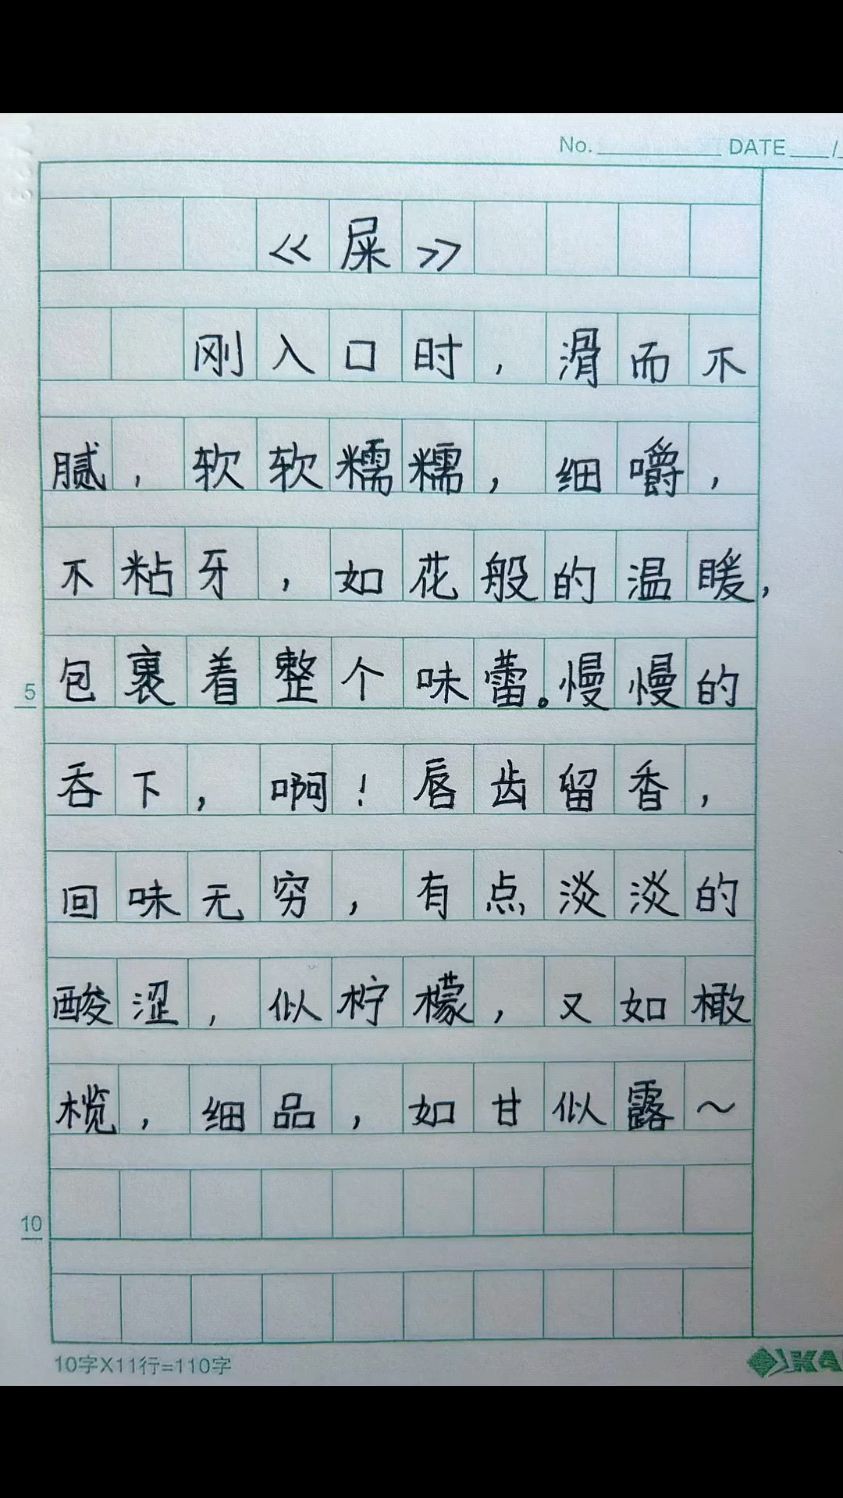 No. DATE /
《屎》
刚入口时，滑而不
腻，软软糯糯，细嚼，
不粘牙，如花般的温暖，
包裹着整个味蕾。慢慢的
5
吞下，啊！唇齿留香，
回味无穷，有点淡淡的
酸涩，似柠檬，又如橄
榄，细品，如甘似露～
10
10字X11行=110字